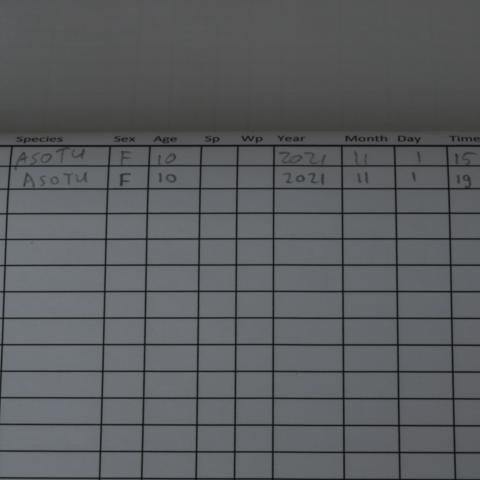 Species Sex Age Sp Wp Year Month Day Time
ASOTU F 10 2021 11 1 15
ASOTU F 10 2021 11 1 19